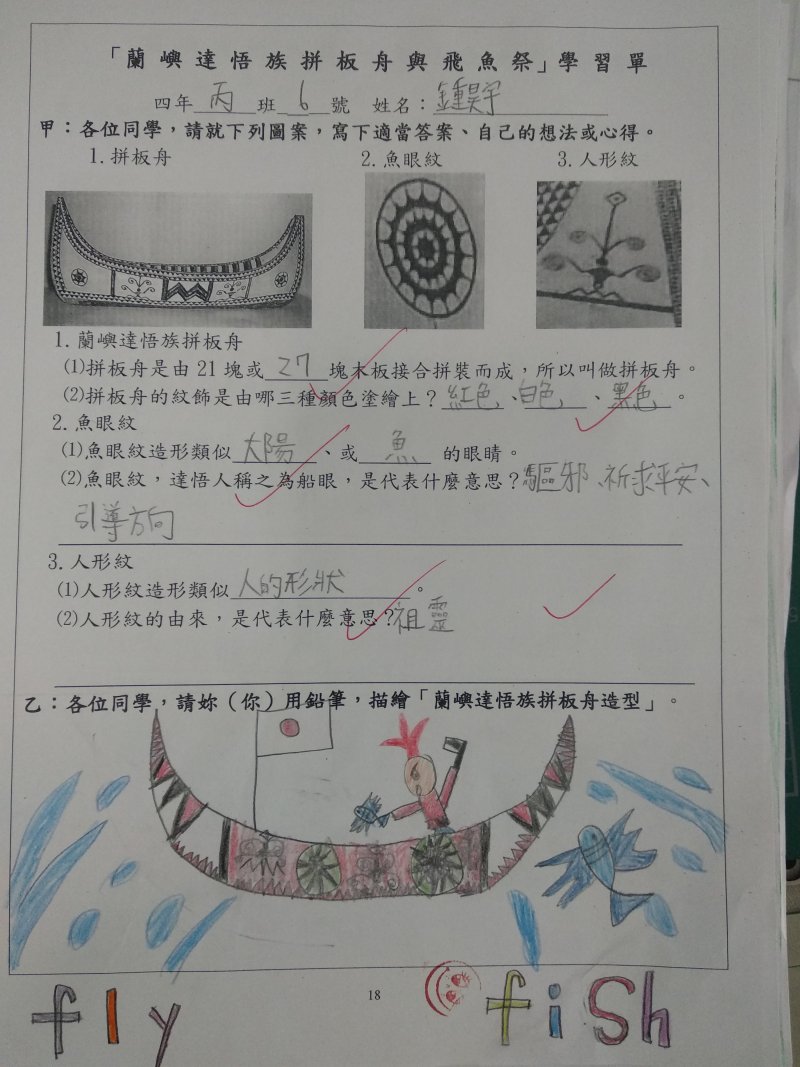 「蘭嶼達悟族拼板舟與飛魚祭」學習單
四年 丙 班 6 號 姓名：鍾昊宇
甲：各位同學，請就下列圖案，寫下適當答案、自己的想法或心得。
1.拼板舟 2.魚眼紋 3.人形紋
1.蘭嶼達悟族拼板舟
⑴拼板舟是由21塊或 27 塊木板接合拼裝而成，所以叫做拼板舟。
⑵拼板舟的紋飾是由哪三種顏色塗繪上？紅色、白色、黑色。
2.魚眼紋
⑴魚眼紋造形類似 太陽 、或 魚 的眼睛。
⑵魚眼紋，達悟人稱之為船眼，是代表什麼意思？驅邪、祈求平安、
引導方向
3.人形紋
⑴人形紋造形類似 人的形狀 。
⑵人形紋的由來，是代表什麼意思？祖靈
乙：各位同學，請妳（你）用鉛筆，描繪「蘭嶼達悟族拼板舟造型」。
18
fly fish